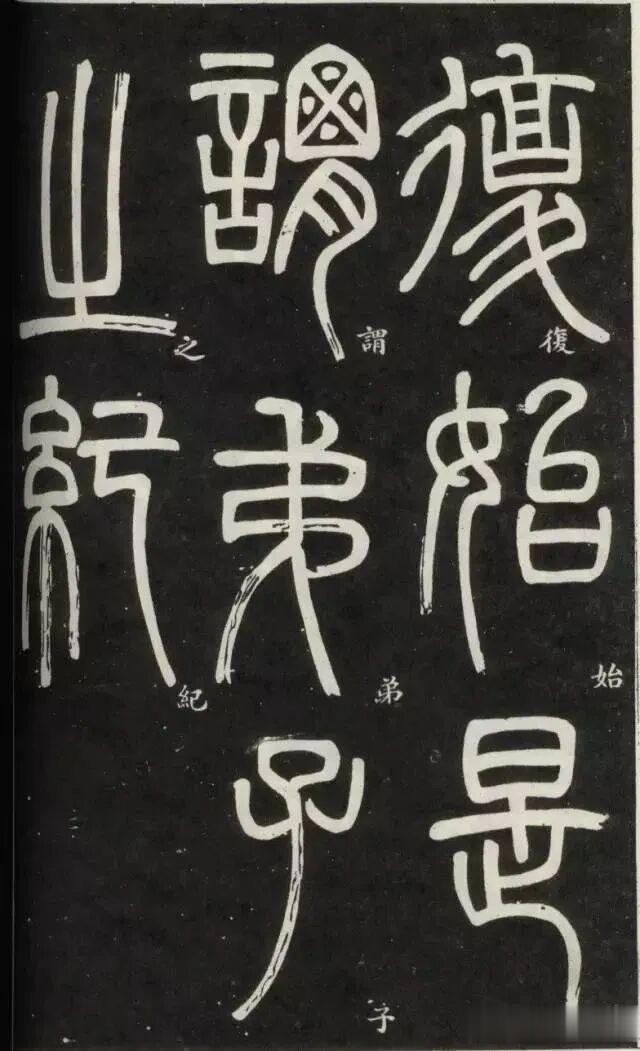 復始是
謂弟子
之紀
復
始
謂
弟
子
之
紀